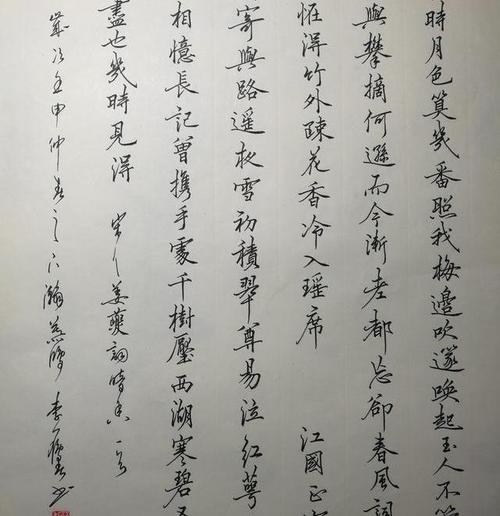 時月色算幾番照我梅邊吹篴喚起玉人不
與攀摘何遜而今漸老都忘卻春風詞
恠得竹外疎花香冷入瑶席 江國正
寄與路遥夜雪初積翠尊易泣紅萼
相憶長記曾携手處千樹壓西湖寒碧
盡也幾時見得 宋人姜夔詞暗香一首
歲次壬申仲春之 瀚 李